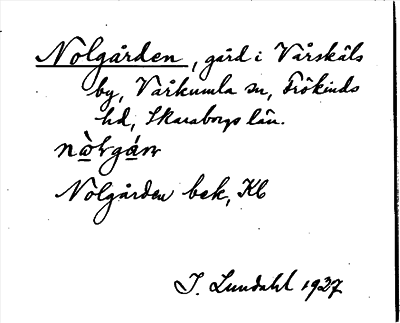 Nolgården, gård i Vårskåls
by, Vårkumla sn, Frökinds
hd, Skaraborgs län.
Nolgården bek, Kb
I. Lundahl 1927